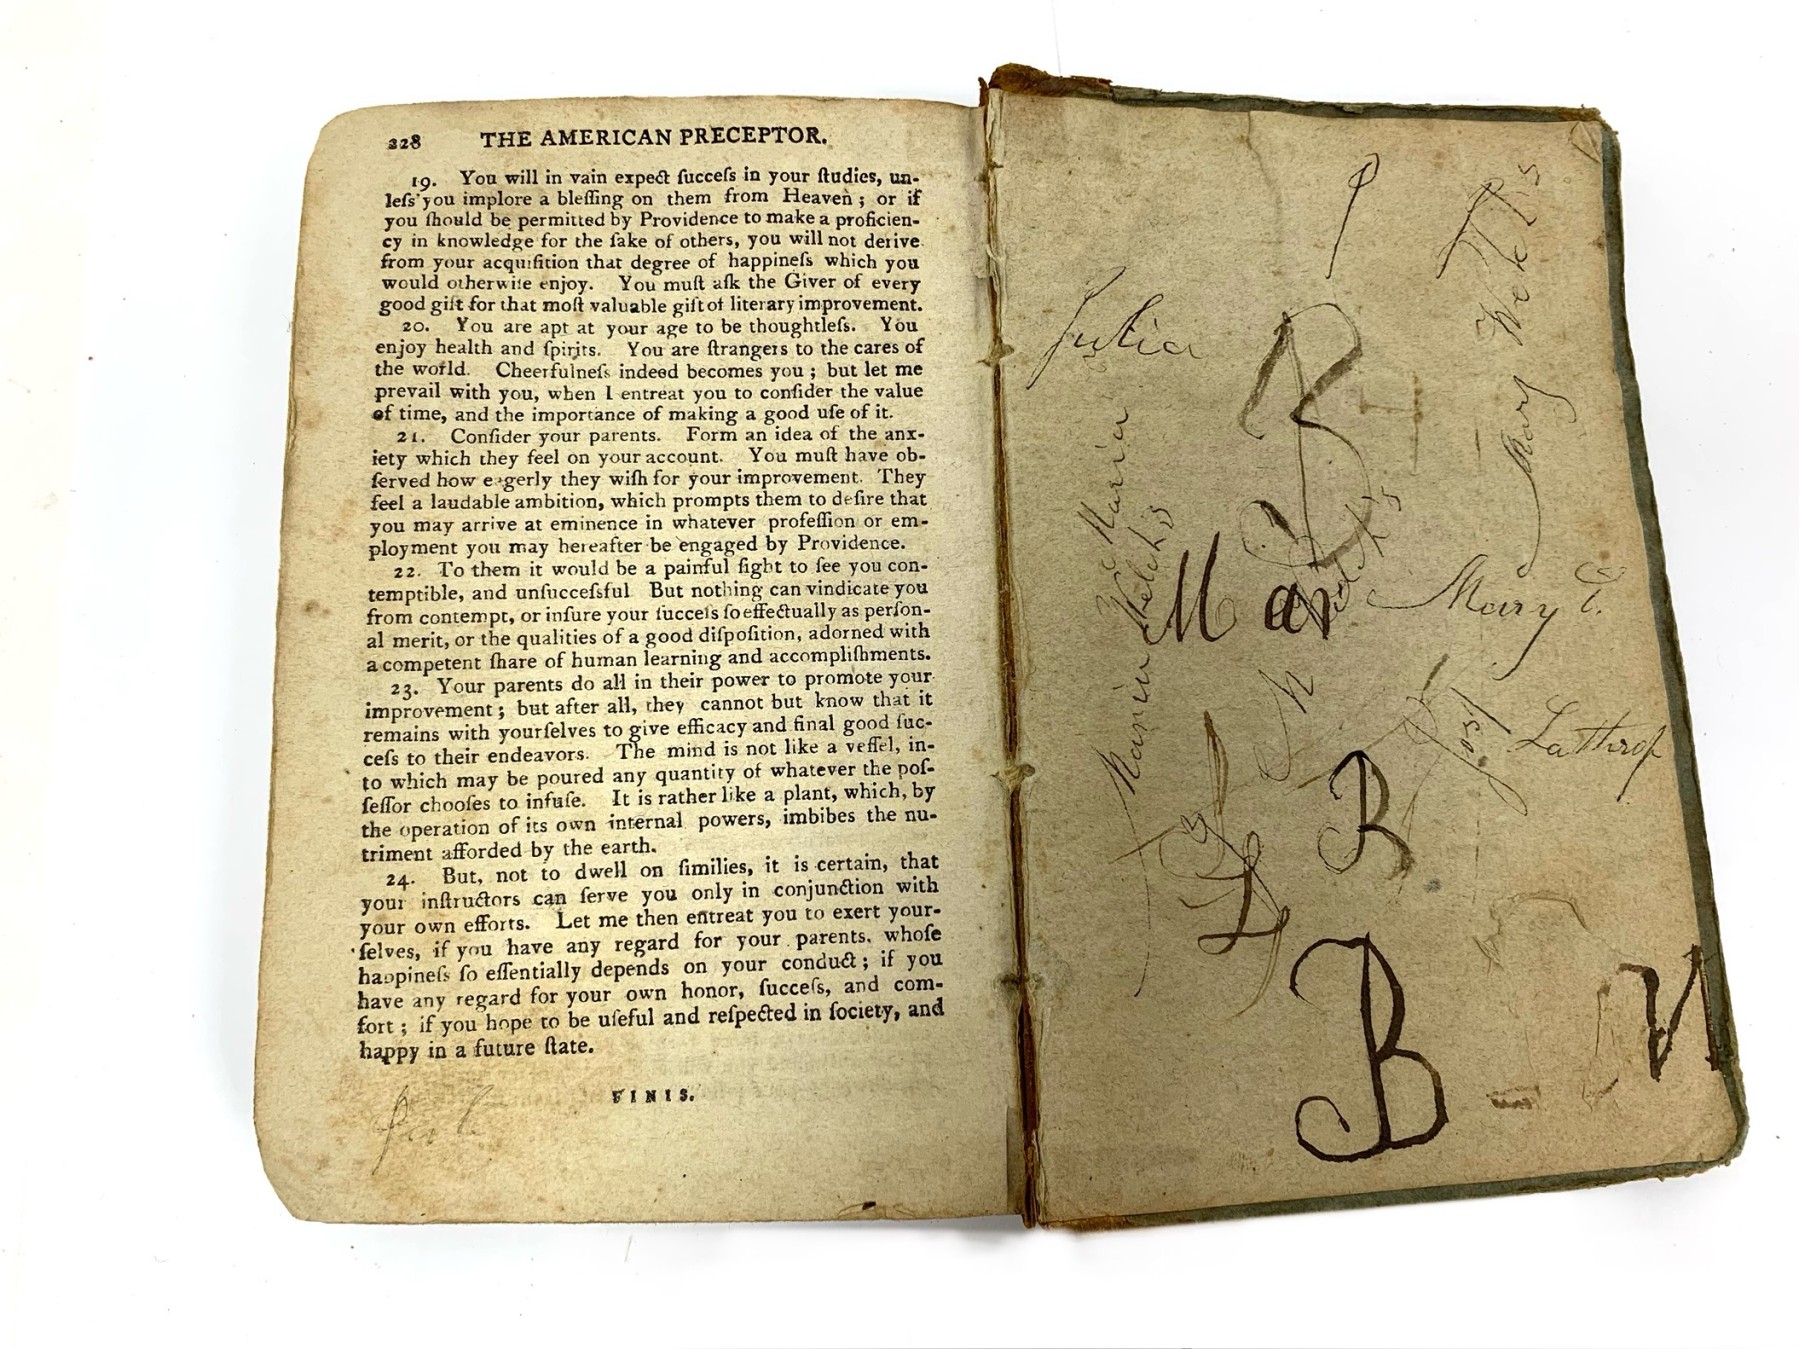 228 THE AMERICAN PRECEPTOR.
19. You will in vain expect ſucceſs in your ſtudies, un-
leſs you implore a bleſſing on them from Heaven ; or if
you ſhould be permitted by Providence to make a proficien-
cy in knowledge for the ſake of others, you will not derive
from your acquiſition that degree of happineſs which you
would otherwiſe enjoy. You muſt aſk the Giver of every
good gift for that moſt valuable gift of literary improvement.
20. You are apt at your age to be thoughtleſs. You
enjoy health and ſpirits. You are ſtrangers to the cares of
the world. Cheerfulneſs indeed becomes you ; but let me
prevail with you, when I entreat you to conſider the value
of time, and the importance of making a good uſe of it.
21. Conſider your parents. Form an idea of the anx-
iety which they feel on your account. You muſt have ob-
ſerved how eagerly they wiſh for your improvement. They
feel a laudable ambition, which prompts them to deſire that
you may arrive at eminence in whatever profeſſion or em-
ployment you may hereafter be engaged by Providence.
22. To them it would be a painful ſight to ſee you con-
temptible, and unſucceſsful But nothing can vindicate you
from contempt, or inſure your ſucceſs ſo effectually as perſon-
al merit, or the qualities of a good diſpoſition, adorned with
a competent ſhare of human learning and accompliſhments.
23. Your parents do all in their power to promote your
improvement ; but after all, they cannot but know that it
remains with yourſelves to give efficacy and final good ſuc-
ceſs to their endeavors. The mind is not like a veſſel, in-
to which may be poured any quantity of whatever the poſ-
ſeſſor chooſes to infuſe. It is rather like a plant, which, by
the operation of its own internal powers, imbibes the nu-
triment afforded by the earth.
24. But, not to dwell on ſimilies, it is certain, that
your inſtructors can ſerve you only in conjunction with
your own efforts. Let me then entreat you to exert your-
ſelves, if you have any regard for your parents, whoſe
happineſs ſo eſſentially depends on your conduct ; if you
have any regard for your own honor, ſucceſs, and com-
fort ; if you hope to be uſeful and reſpected in ſociety, and
happy in a future ſtate.
FINIS.
Julia
B
Maria
Mary
Mar
Mary E.
Lathrop
B
L
B
N